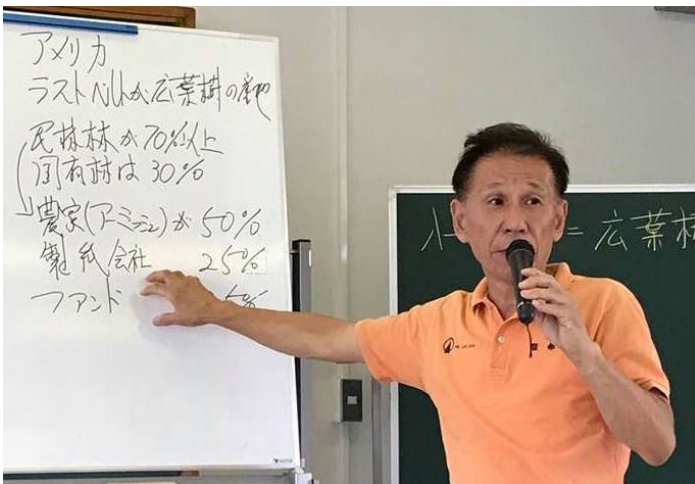 アメリカ
ラストベルトが広葉樹の産地
民有林が70%以上
国有林は30%
農家(アーミッシュ)が50%
製紙会社 25%
ファンド 5%
= 広葉樹